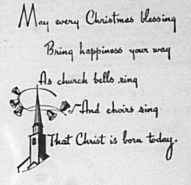 May every Christmas blessing
Bring happiness your way
As church bells ring
And choirs sing
That Christ is born today.